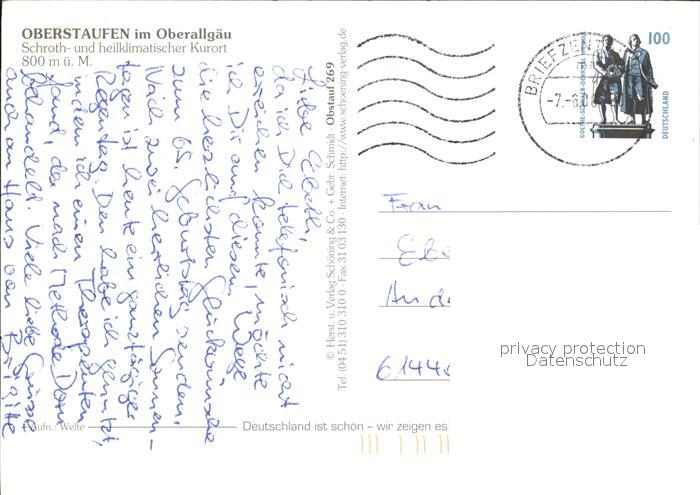 OBERSTAUFEN im Oberallgäu
Schroth- und heilklimatischer Kurort
800 m ü. M.
Liebe
da ich Dich telefonisch nicht
erreichen konnte, möchte
ich Dir auf diesem Wege
die herzlichsten Glückwünsche
zum 65. Geburtstag senden.
Nach zwei herrlichen Sonnen-
tagen ist heute ein ganztägiger
Regentag. Den habe ich genutzt,
indem ich einen Therapeuten
fand, der nach Methode Dorn
behandelt. Viele liebe Grüsse
auch an Hans von Brigitte
Aufn.: Welte
Deutschland ist schön – wir zeigen es
© Herst. u. Verlag Schöning & Co. + Gebr. Schmidt Obstauf 269
Tel. (04 51) 310 310 0 · Fax 31 03 130 · Internet: http://www.schoening-verlag.de
BRIEFZEN
-7.-8.0
GOETHE-SCHILLER-DENKMAL WEIMAR
100
DEUTSCHLAND
Frau
Ebe
An de
61440
privacy protection
Datenschutz